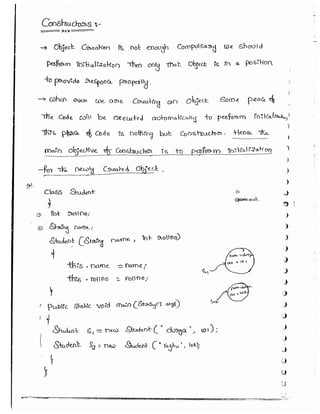 Constructors :-
→ Object Creation is not enough Compulsary we should
perform Initialization Then only That Object is in a position
to provide response properly.
→ when ever we are Creating an object Some peace of
The Code will be executed automatically to perform initialization,
This peace of Code is nothing but Constructor. Hence the
main objective of Constructor is to perform Initialization
for the newly Created object.
Class Student
{
int rollno;
String name;
Student (String name, int rollno)
{
this.name = name;
this.rollno = rollno;
}
Public static void main (String[] args)
{
Student S1 = new Student ("durga", 101);
Student S2 = new Student ("raghu", 102);
}
}
S1